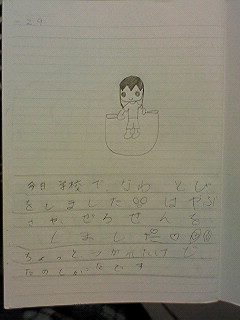 今日 学校で なわ とび
をしました はやぶ
さや、ぜろせんを
しました
ちょっとつかれたけど
たのしかったです